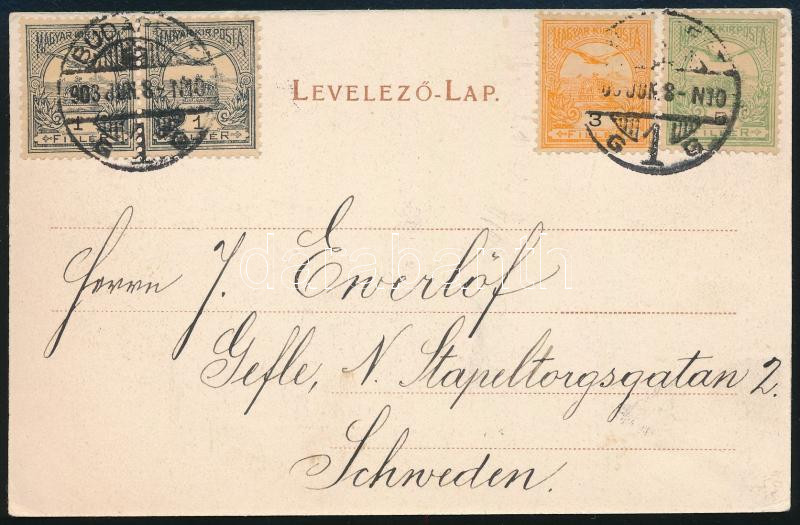 MAGYAR KIR. POSTA MAGYAR KIR. POSTA MAGYAR KIR. POSTA
BUDA
903 JUN. 8-N10 JUN. 8-N10
LEVELEZŐ-LAP.
1 1 3 5
FILLÉR FILLÉR FILLÉR FILLÉR
G 1 G 1 G
darabanth
Herrn J. Ewerlöf
Gefle, N. Stapeltorgsgatan 2.
Schweden.